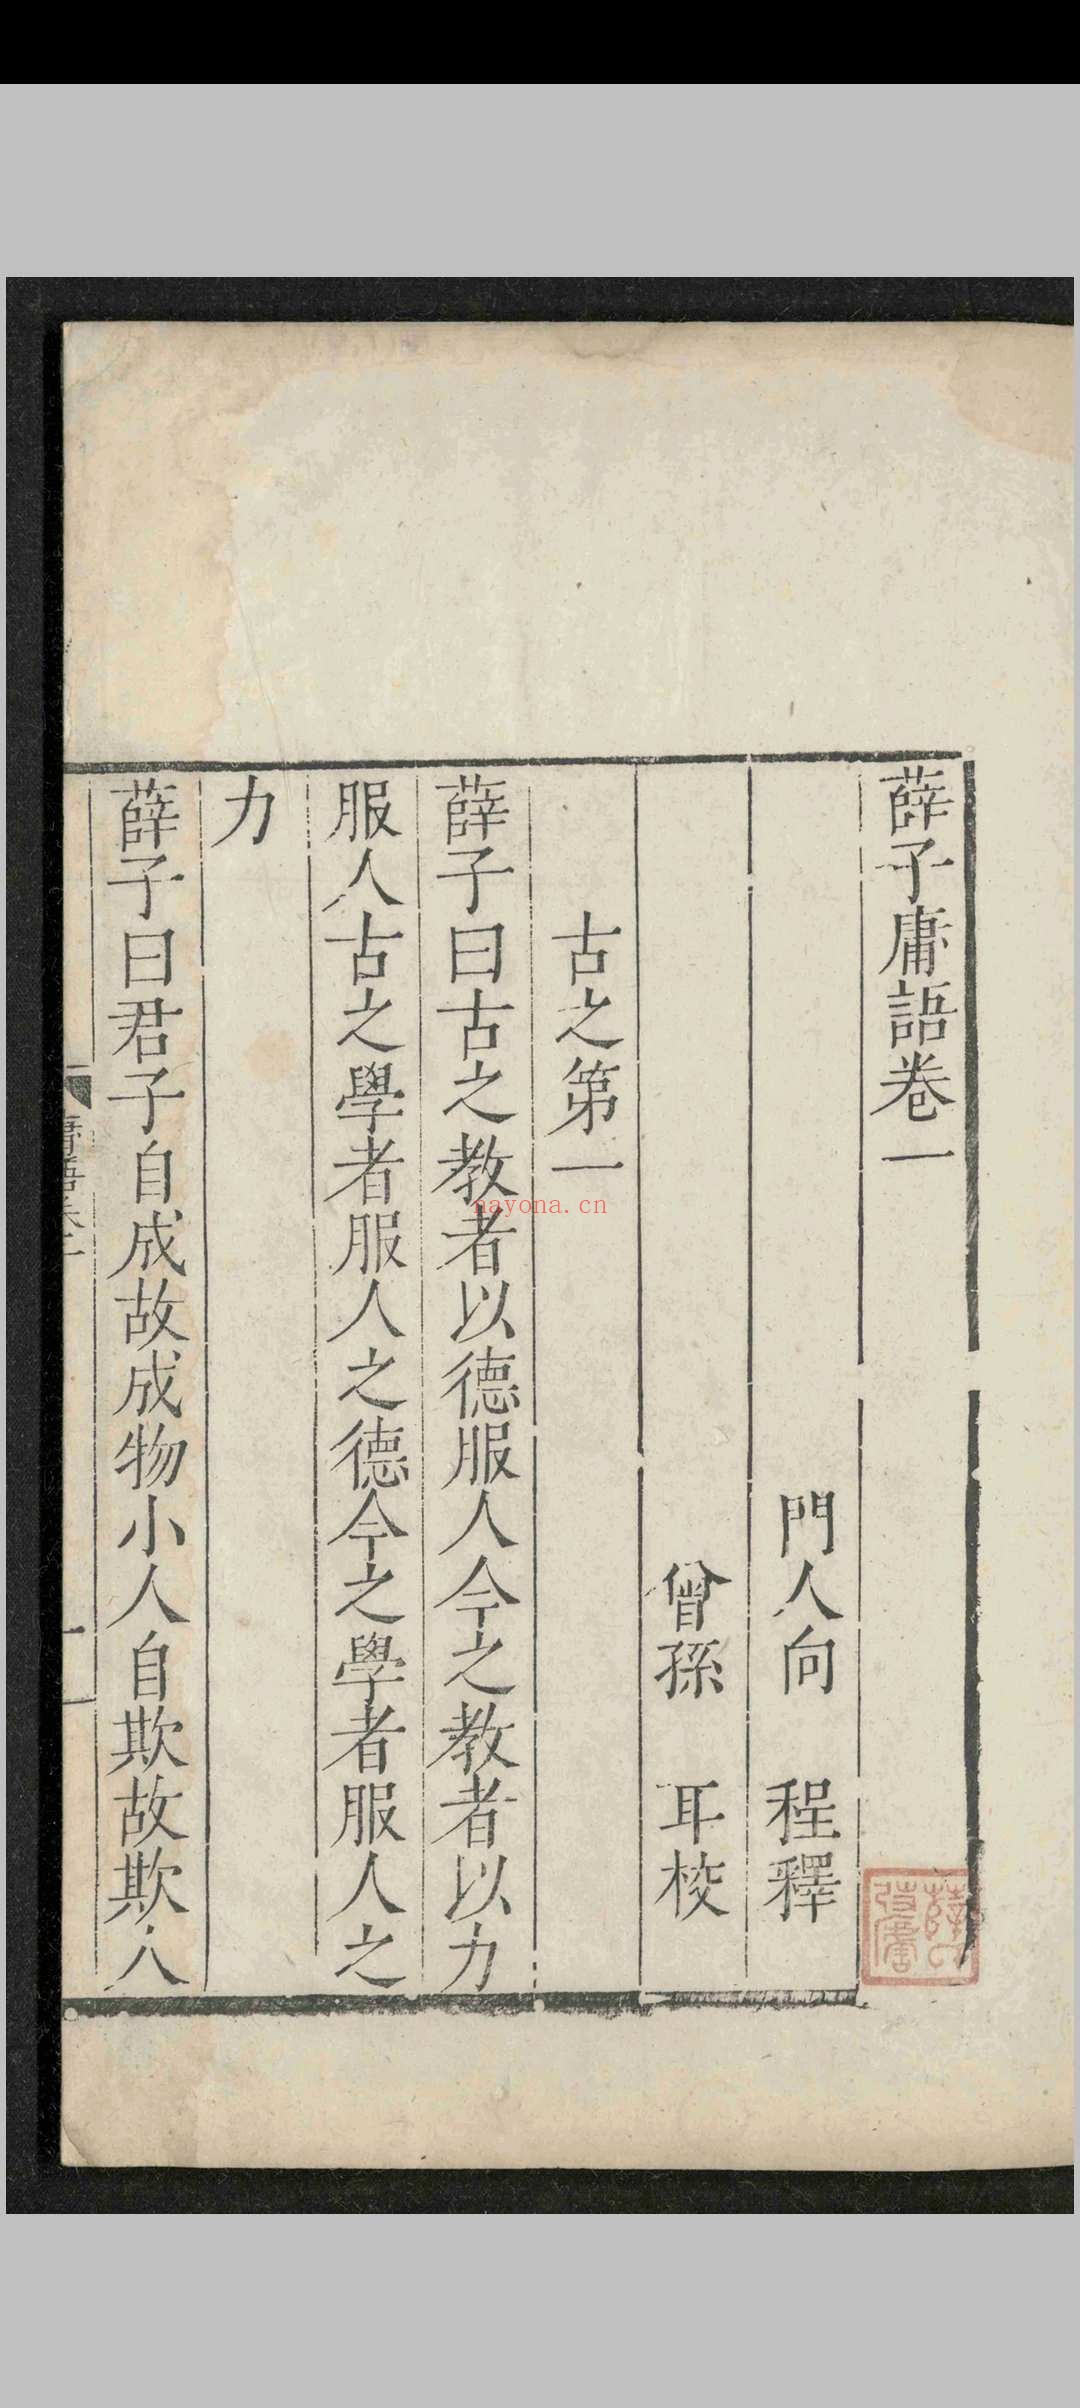 薛子庸語卷一
門人向　程釋
曾孫　耳校
古之第一
薛子曰古之教者以德服人今之教者以力
服人古之學者服人之德今之學者服人之
力
薛子曰君子自成故成物小人自欺故欺人
庸語卷一
一
nayona.cn